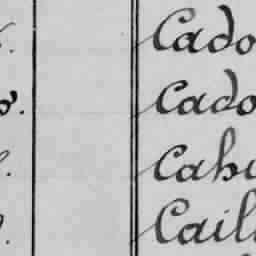 Cado
Cado
Cahu
Cail